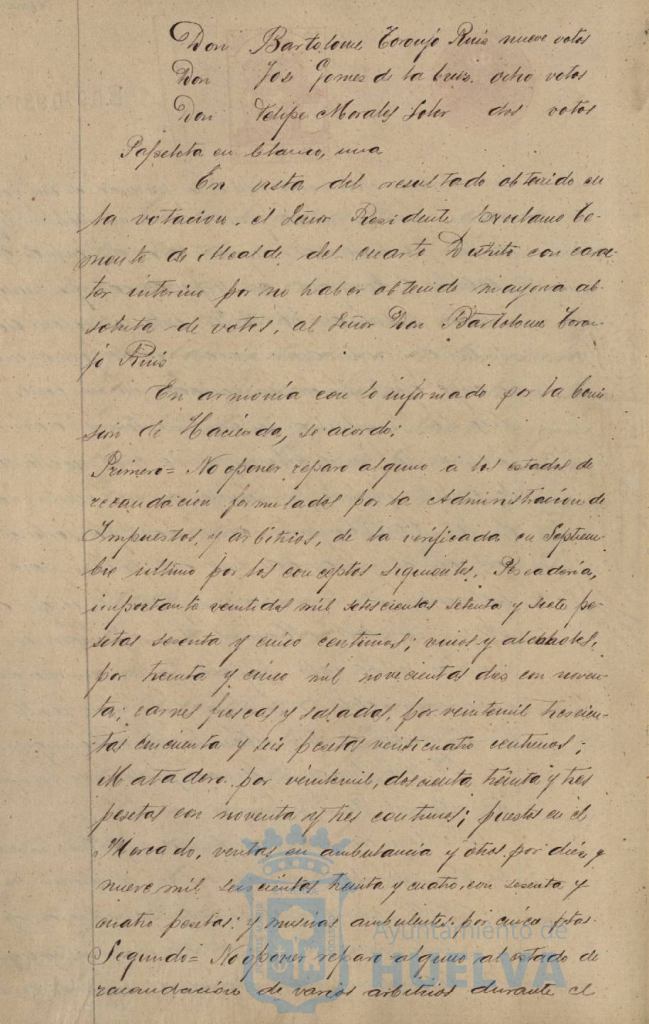 Don Bartolome Toronjo Ruis nueve votos
Don Jose Gomez de la Cruz. ocho votos
Don Felipe Morales Soler dos votos
Papeleta en blanco, una
En vista del resultado obtenido en
la votacion. el Señor Presidente proclamo Te-
niente de Alcalde del cuarto Distrito con carac-
ter interino por no haber obtenido mayoria ab-
soluta de votos, al Señor Don Bartolome Toron-
jo Ruis
En armonía con lo informado por la Comi
sion de Hacienda, se acordo:
Primero= No oponer reparo alguno a los estados de
recaudacion formulados por la Administracion de
Impuestos y arbitrios, de la verificada en Septiem-
bre ultimo por los conceptos siguientes.
importante veintidos mil setecientas setenta y siete pe-
setas sesenta y cinco centimos; vinos y alcoholes,
por treinta y cinco mil novecientas dies con noven-
ta; carnes frescas y saladas, por veintemil trescien-
tas cincuenta y seis pesetas veinticuatro centimos;
Matadero por veintemil, doscienta, treinta y tres
pesetas con noventa y tres centimos; puestos en el
Mercado, ventas en ambulancia y otros, por dies y
nueve mil seiscientas treinta y cuatro, con sesenta y
cuatro pesetas: y musicas ambulantes, por cinco ptas.
Segundo= No oponer reparo alguno al estado de
recaudacion de varios arbitrios durante el
Ayuntamiento de
HUELVA